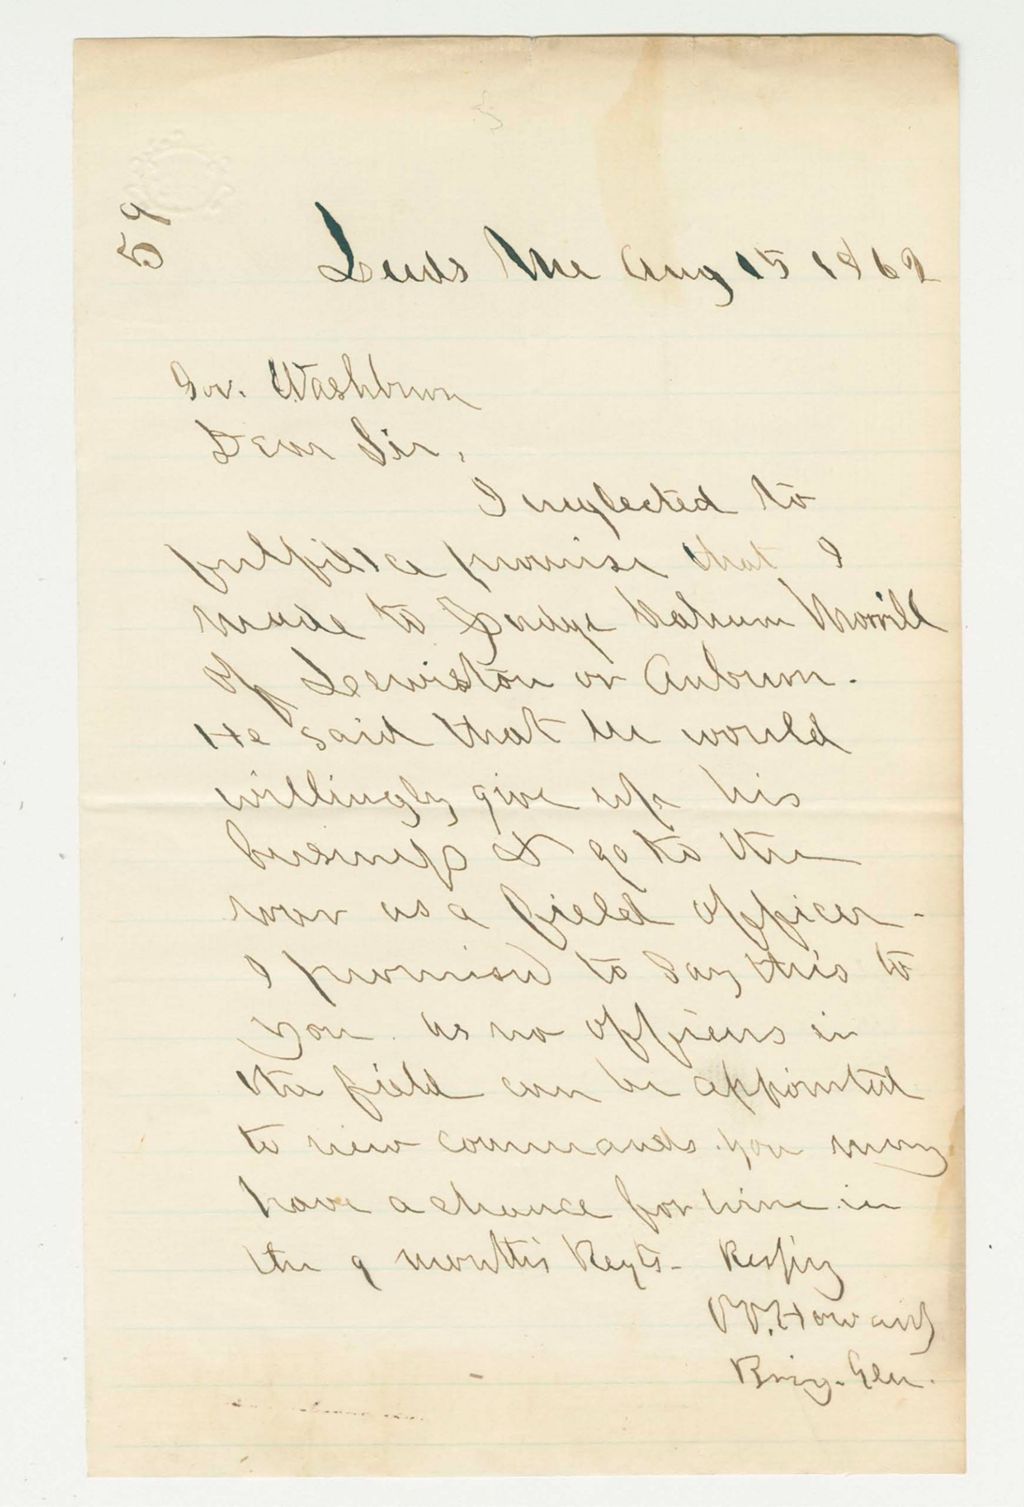 59
Leeds Me Aug 15 1862
Gov. Washburn
Dear Sir,
I neglected to
fulfil a promise that I
made to Judge Nahum Morrill
of Lewiston or Auburn.
He said that he would
willingly give up his
business & go to the
war as a field officer -
I promised to say this to
you. As no officers in
the field can be appointed
to new commands. you may
have a chance for him in
the 9 months Regts - Respy
O.O. Howard
Brig. Gen.